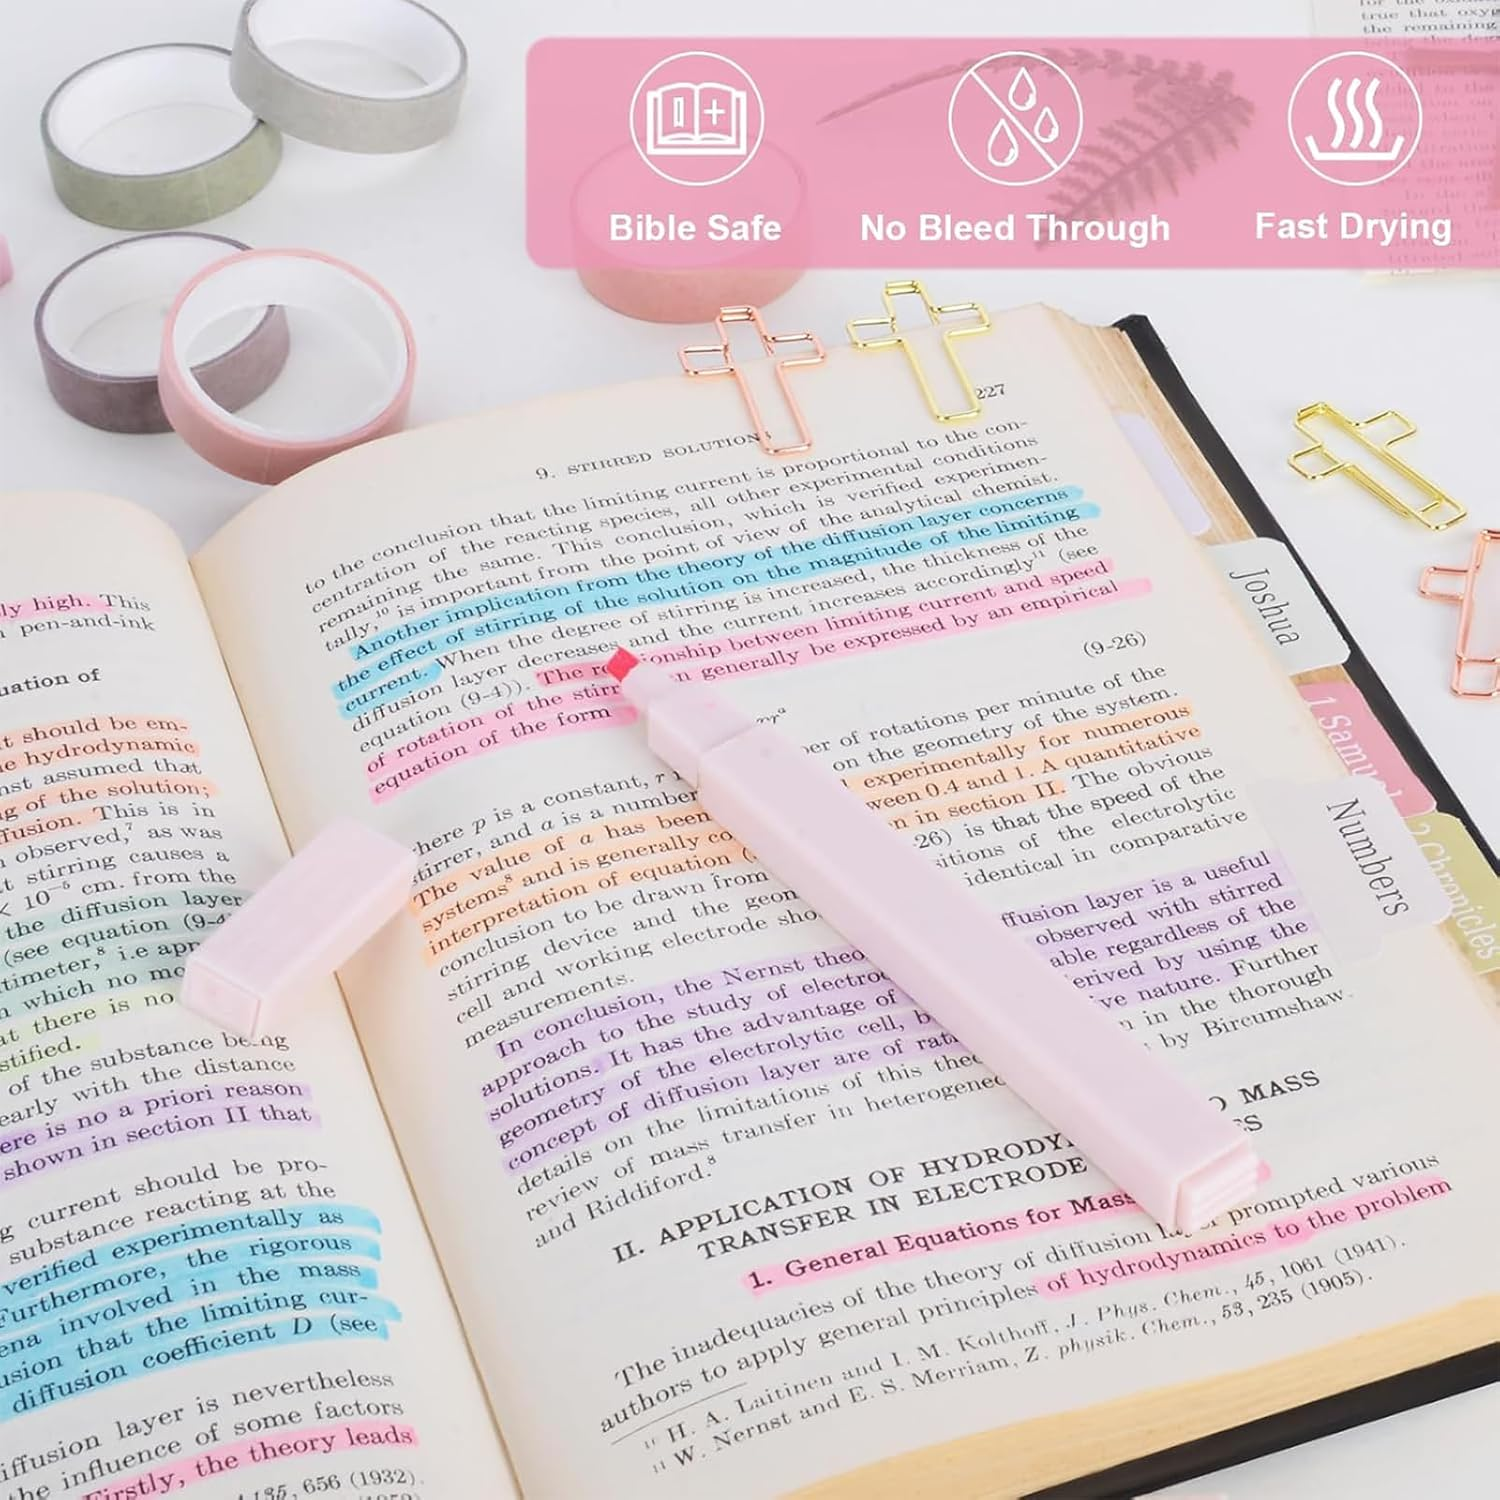 Bible Safe
No Bleed Through
Fast Drying
9. STIRRED SOLUTIONS
227
to the conclusion that the limiting current is proportional to the con-
centration of the reacting species, all other experimental conditions
remaining the same. This conclusion, which is verified experimen-
tally,¹⁰ is important from the point of view of the analytical chemist.
Another implication from the theory of the diffusion layer concerns
the effect of stirring of the solution on the magnitude of the limiting
current. When the degree of stirring is increased, the thickness of the
diffusion layer decreases and the current increases accordingly¹¹ (see
equation (9-4)). The re ionship between limiting current and speed
of rotation of the stirr n generally be expressed by an empirical
equation of the form
(9-26)
here p is a constant, r er of rotations per minute of the
stirrer, and a is a number on the geometry of the system.
The value of a has been experimentally for numerous
systems⁸ and is generally co ween 0.4 and 1. A quantitative
interpretation of equation ( n in section II. The obvious
conclusion to be drawn from 26) is that the speed of the
stirring device and the geom sitions of the electrolytic
cell and working electrode sho identical in comparative
measurements.
In conclusion, the Nernst theo ffusion layer is a useful
approach to the study of electro observed with stirred
solutions. It has the advantage of able regardless of the
geometry of the electrolytic cell, b erived by using the
concept of diffusion layer are of rat ve nature. Further
details on the limitations of this theo n in the thorough
review of mass transfer in heterogeneo by Bircumshaw
and Riddiford.⁸
II. APPLICATION OF HYDRODY O MASS
TRANSFER IN ELECTRODE ES
1. General Equations for Mass
The inadequacies of the theory of diffusion la r prompted various
authors to apply general principles of hydrodynamics to the problem
¹⁰ H. A. Laitinen and I. M. Kolthoff, J. Phys. Chem., 45, 1061 (1941).
¹¹ W. Nernst and E. S. Merriam, Z. physik. Chem., 53, 235 (1905).
Joshua
1 Samuel
Numbers
2 Chronicles
ly high. This
pen-and-ink
uation of
t should be em-
e hydrodynamic
nst assumed that
g of the solution;
ffusion. This is in
observed,⁷ as was
t stirring causes a
< 10⁻⁵ cm. from the
the diffusion layer
(see equation (9-4
timeter,⁸ i.e app
which no mo
at there is no
stified.
of the substance being
early with the distance
ere is no a priori reason
shown in section II that
g current should be pro-
substance reacting at the
verified experimentally as
Furthermore, the rigorous
ena involved in the mass
usion that the limiting cur-
diffusion coefficient D (see
iffusion layer is nevertheless
the influence of some factors
Firstly, the theory leads
135, 656 (1932).
true that oxyg
the remaining